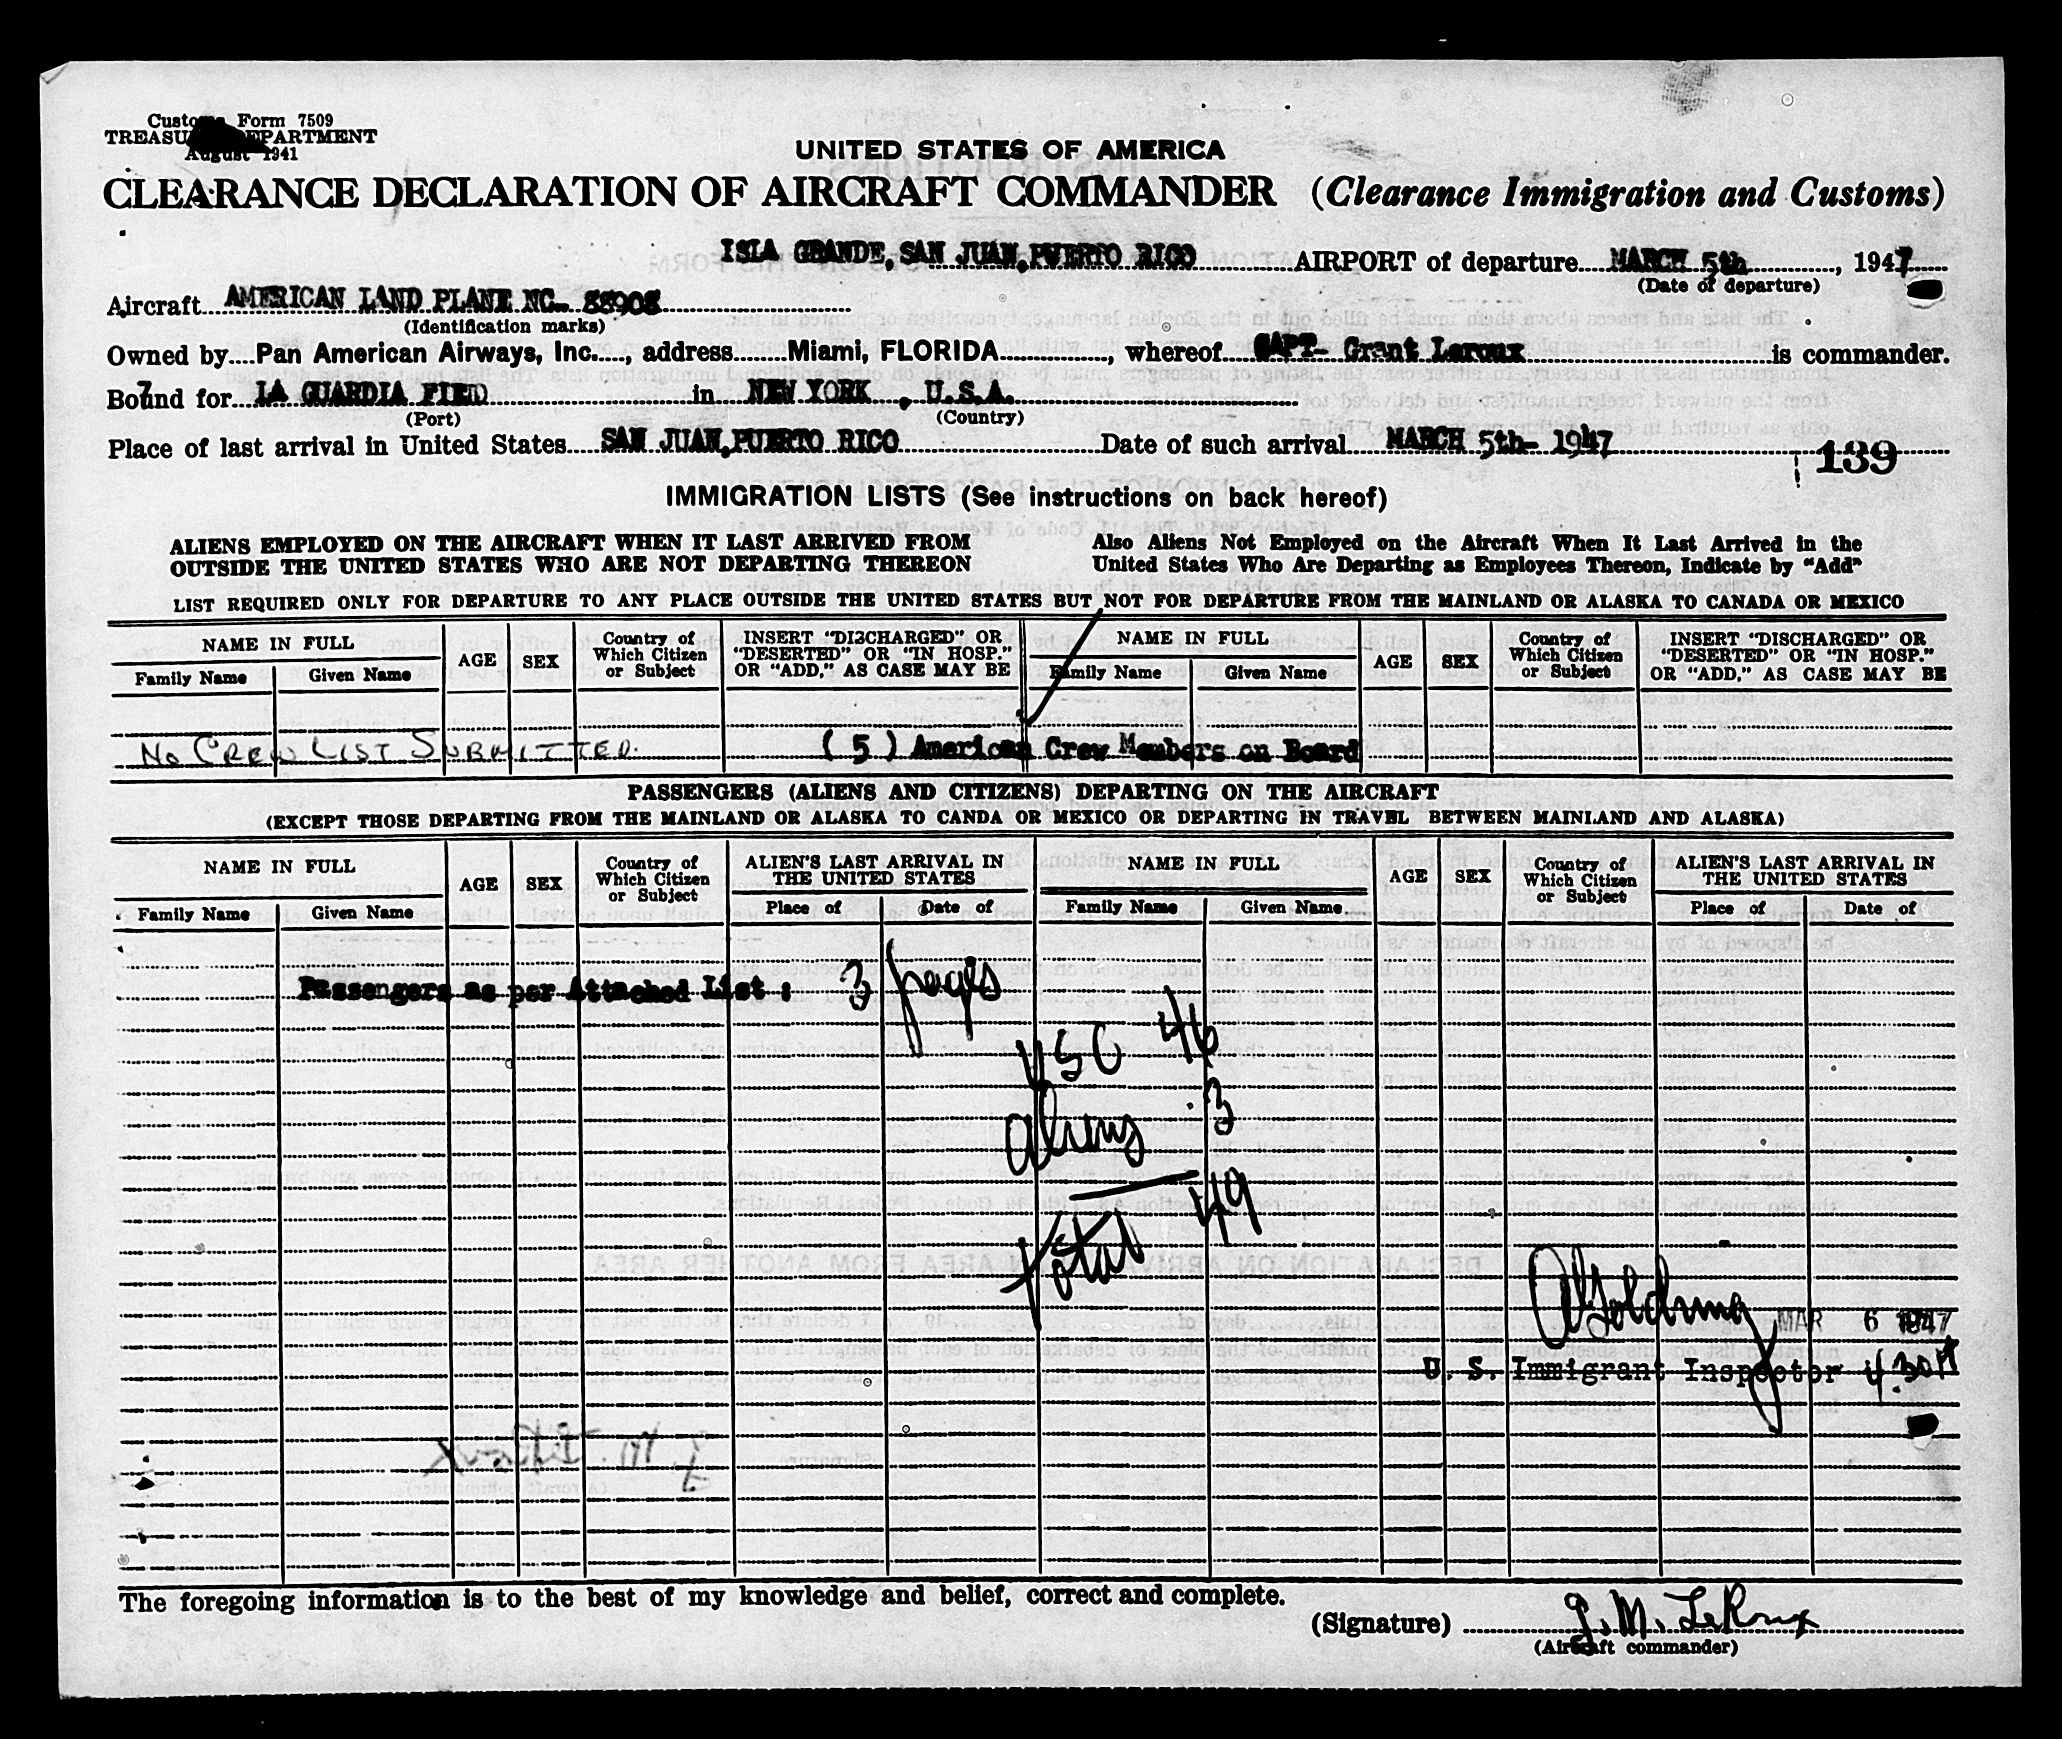 Customs Form 7509
TREASURY DEPARTMENT
August 1941
UNITED STATES OF AMERICA
CLEARANCE DECLARATION OF AIRCRAFT COMMANDER (Clearance Immigration and Customs)
ISLA GRANDE, SAN JUAN, PUERTO RICO AIRPORT of departure MARCH 5th, 1947
(Date of departure)
Aircraft AMERICAN LAND PLANE NC- 88908
(Identification marks)
Owned by Pan American Airways, Inc., address Miami, FLORIDA, whereof CAPT- Grant Leroux is commander.
Bound for LA GUARDIA FIED in NEW YORK, U.S.A.
(Port) (Country)
Place of last arrival in United States SAN JUAN, PUERTO RICO Date of such arrival MARCH 5th- 1947
139
IMMIGRATION LISTS (See instructions on back hereof)
ALIENS EMPLOYED ON THE AIRCRAFT WHEN IT LAST ARRIVED FROM Also Aliens Not Employed on the Aircraft When It Last Arrived in the
OUTSIDE THE UNITED STATES WHO ARE NOT DEPARTING THEREON United States Who Are Departing as Employees Thereon, Indicate by "Add"
LIST REQUIRED ONLY FOR DEPARTURE TO ANY PLACE OUTSIDE THE UNITED STATES BUT NOT FOR DEPARTURE FROM THE MAINLAND OR ALASKA TO CANADA OR MEXICO
NAME IN FULL AGE SEX Country of Which Citizen or Subject INSERT "DISCHARGED" OR "DESERTED" OR "IN HOSP." OR "ADD," AS CASE MAY BE NAME IN FULL AGE SEX Country of Which Citizen or Subject INSERT "DISCHARGED" OR "DESERTED" OR "IN HOSP." OR "ADD," AS CASE MAY BE
Family Name Given Name Family Name Given Name
NO CREW LIST SUBMITTED. ( 5 ) American Crew Members on Board
PASSENGERS (ALIENS AND CITIZENS) DEPARTING ON THE AIRCRAFT
(EXCEPT THOSE DEPARTING FROM THE MAINLAND OR ALASKA TO CANDA OR MEXICO OR DEPARTING IN TRAVEL BETWEEN MAINLAND AND ALASKA)
NAME IN FULL AGE SEX Country of Which Citizen or Subject ALIEN'S LAST ARRIVAL IN THE UNITED STATES NAME IN FULL AGE SEX Country of Which Citizen or Subject ALIEN'S LAST ARRIVAL IN THE UNITED STATES
Family Name Given Name Place of Date of Family Name Given Name Place of Date of
Passengers as per Attached List : 3 pages
USC 46
aliens 3
total 49
MAR 6 1947
U. S. Immigrant Inspector 4:30
The foregoing information is to the best of my knowledge and belief, correct and complete.
(Signature) G. M. LeRoux
(Aircraft commander)